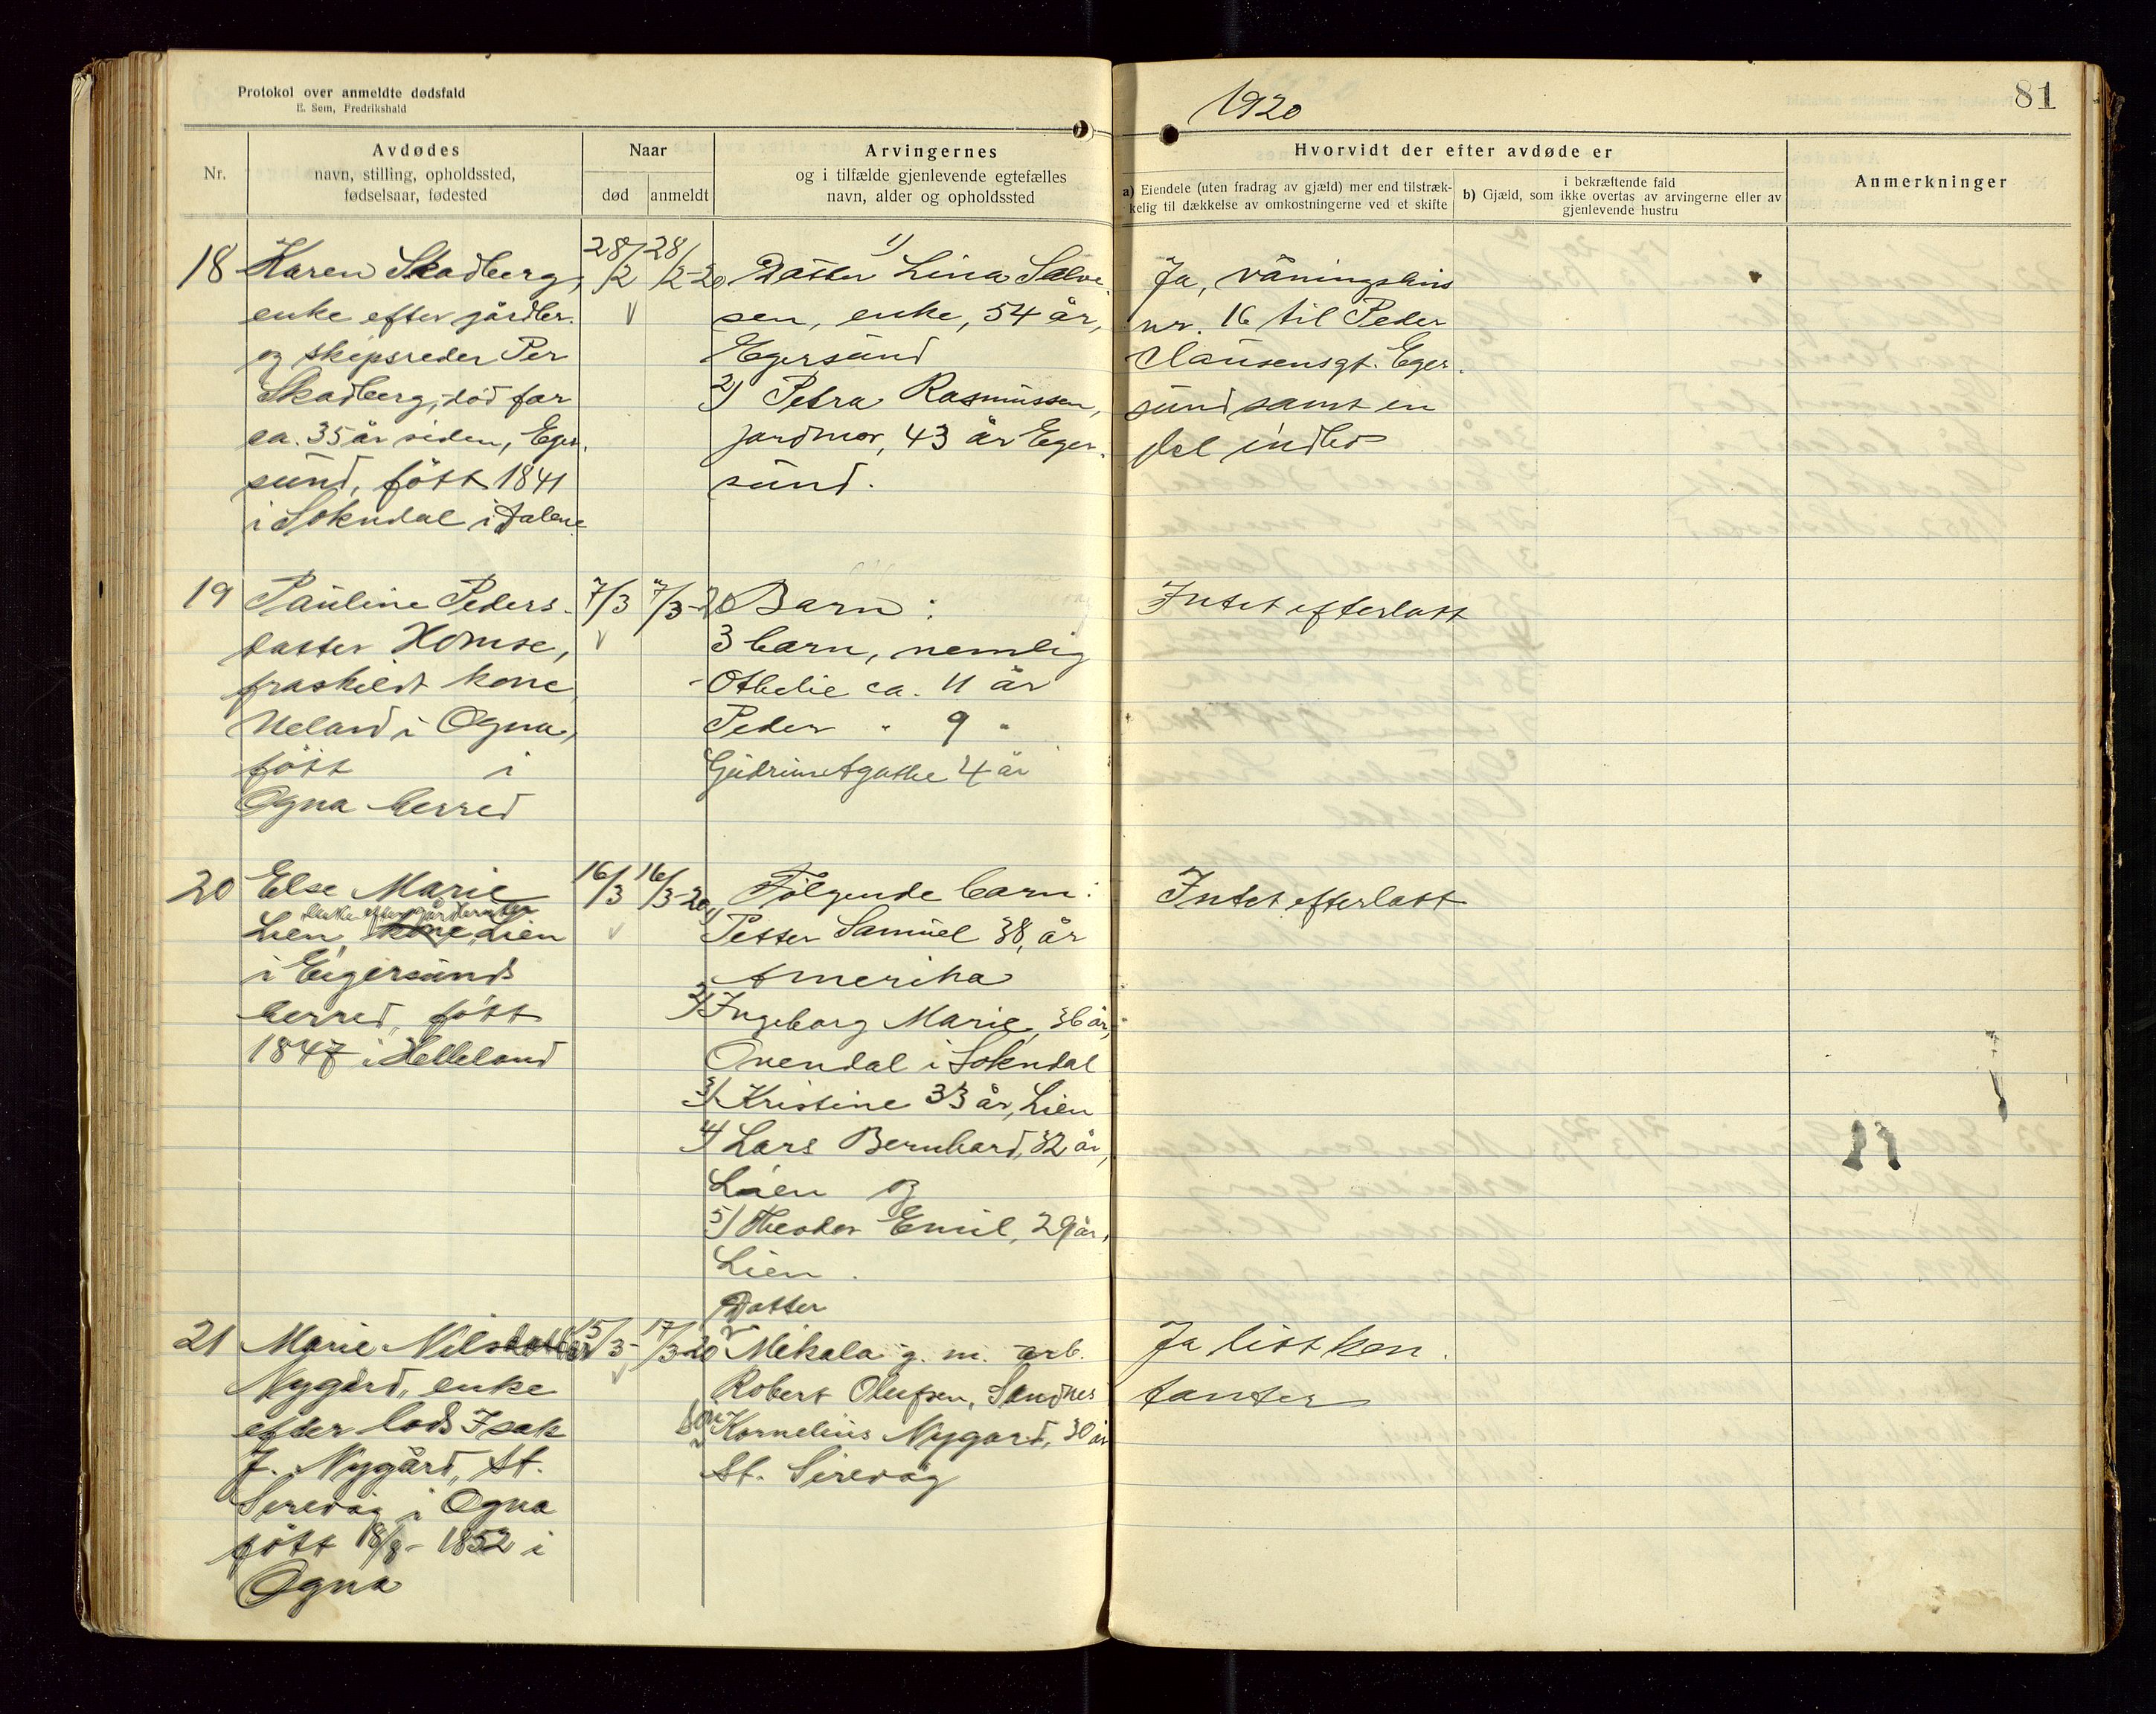 Protokol over anmeldte dødsfald
E. Sem, Fredrikshald
1920
81
Nr.
Avdødes
navn, stilling, opholdssted,
fødselsaar, fødested
Naar
død
anmeldt
Arvingernes
og i tilfælde gjenlevende egtefælles
navn, alder og opholdssted
Hvorvidt der efter avdøde er
a) Eiendele (uten fradrag av gjæld) mer end tilstræk-
kelig til dækkelse av omkostningerne ved et skifte
i bekræftende fald
b) Gjæld, som ikke overtas av arvingerne eller av
gjenlevende hustru
Anmerkninger
18
Karen Skadberg,
enke efter gårdbr.
og skipsreder Per
Skadberg, död for
ca. 35 år siden, Eger-
sund, fött 1841
i Sokndal i Dalene
28/2
28/2-20
1)
Datter Lina Salve-
sen, enke, 54 år,
Egersund
2) Petra Rasmussen,
jordmor, 43 år Eger-
sund.
Ja, våningshus
nr. 16 til Peder
Clausensgt. Eger-
sund samt en
del indbo
19
Pauline Peders-
datter Homse,
fraskildt kone
Ueland i Ogna,
fött i
Ogna herred
7/3
7/3-20
Barn:
3 barn, nemlig
Othelie ca. 11 år
Peder " 9 "
Gudrun Agathe 4 år
Intet efterlatt
20
Else Marie
enke efter gårdbruker
Lien, kone, Lien
i Eigersunds
herred, fött
1847 i Helleland
16/3
16/3-20
Fölgende barn:
1) Petter Samuel 38, år
Amerika
2) Ingeborg Marie, 36 år,
Ovendal i Sokndal
3) Kristine 33 år, Lien
4) Lars Bernhard, 32 år,
Lien og
5) Theodor Emil, 29 år,
Lien.
Intet efterlatt
21
Marie Nilsdatter
Nygård, enke
efter lods Isak
J. Nygård, St.
Sirevåg i Ogna
fött 18/8-1852 i
Ogna
15/3-
17/3-20
Datter
Mikala g. m. arb.
Robert Olufsen, Sandnes
Sön
Kornelius Nygard, 30 år
St. Sirevåg
Ja litt kon-
tanter